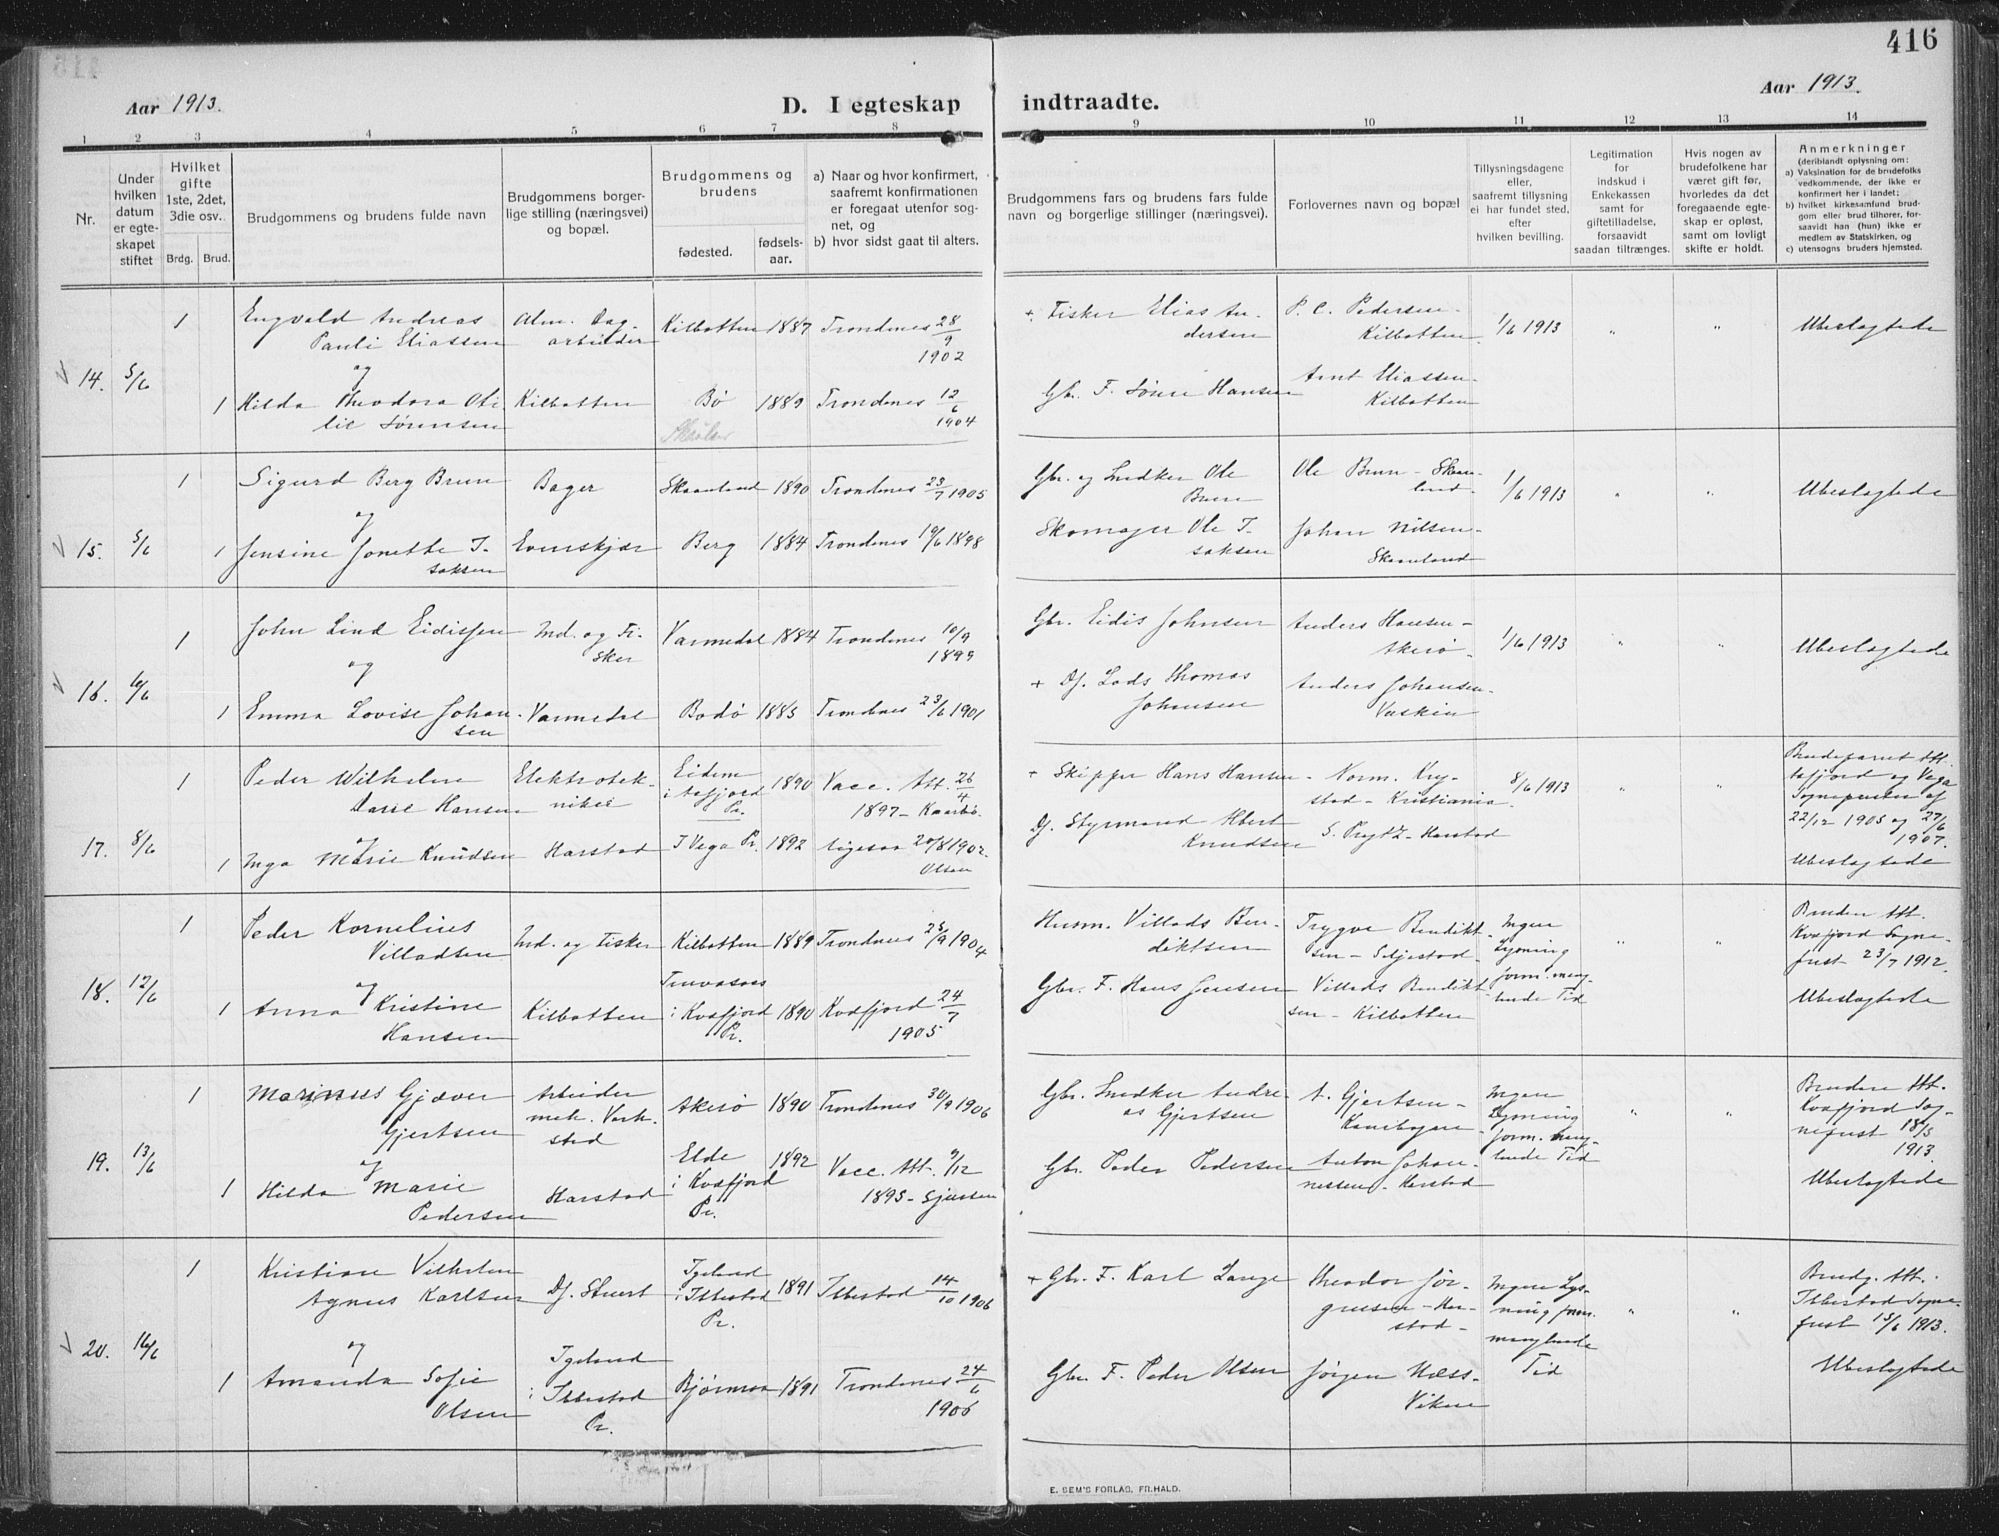 416
Aar 1913.
D. I egteskap indtraadte.
Aar 1913.
1 2 3 4 5 6 7 8 9 10 11 12 13 14
Nr.
Under hvilken datum er egte-skapet stiftet
Hvilket gifte 1ste, 2det, 3die osv.
Brdg. Brud.
Brudgommens og brudens fulde navn
Brudgommens borger-lige stilling (næringsvei) og bopæl.
Brudgommens og brudens
fødested.
fødsels-aar.
a) Naar og hvor konfirmert, saafremt konfirmationen er foregaat utenfor sog-net, og
b) hvor sidst gaat til alters.
Brudgommens fars og brudens fars fulde navn og borgerlige stillinger (næringsvei).
Forlovernes navn og bopæl
Tillysningsdagene eller, saafremt tillysning ei har fundet sted, efter hvilken bevilling.
Legitimation for indskud i Enkekassen samt for giftetilladelse, forsaavidt saadan tiltrænges.
Hvis nogen av brudefolkene har været gift før, hvorledes da det foregaaende egte-skap er opløst, samt om lovligt skifte er holdt.
Anmerkninger
(deriblandt oplysning om:
a) Vaksination for de brudefolks vedkommende, der ikke er konfirmert her i landet;
b) hvilket kirkesamfund brud-gom eller brud tilhører, for-saavidt han (hun) ikke er medlem av Statskirken, og
c) utensogns bruders hjemsted.
14. 5/6
1 Engvald Andreas Pauli Eliassen
Alm. Dag-arbeider
Kilbotten 1887 Trondenes 28/9 1902
+ Fisker Elias Andersen
P. C. Pedersen - Kilbotten
1/6 1913 " " Ubeslægtede
og
1 Hilda Theodora Otilie Sørensen
Kilbotten
Bø 1889 Trondenes 12/6 1904
Gbr. F. Søren Hansen
Arnt Eliassen - Kilbotten
15. 5/6
1 Sigurd Berg Brun
Bager
Skaanland 1890 Trondenes 23/7 1905
Gbr. og Snedker Ole Brun
Ole Brun - Skaanland
1/6 1913 " " Ubeslægtede
og
1 Jensine Jonette Isaksen
Evenskjær
Berg 1884 Trondenes 19/6 1898
Skomager Ole Isaksen
Johan Nilsen - Skaanland
16. 6/6
1 John Lind Eidissen
Ind. og Fisker
Varmedal 1884 Trondenes 10/9 1899
Gbr. Eidis Johnsen
Anders Hansen - Akerø
1/6 1913 " " Ubeslægtede
og
1 Emma Lovise Johansen
Varmedal
Bodø 1885 Trondenes 23/6 1901
+ Df. Lods Thomas Johansen
Anders Johansen - Vaskin
17. 8/6
1 Peder Wilhelm Hansen
Elektrotekniker
1890 Vacc. Att. 26/4 1897 - Kaarbø.
+ Skipper Hans Hansen
Norm. Krystad - Kristiania
8/6 1913 " "
Brudeparret Att.
og Vega Sogneprester af 22/12 1905 og 27/6 1907.
Ubeslægtede
og
1 Inga Marie Knudsen
Harstad
I Vega Pr. 1892 ligesaa 20/8 1902. Olsen
Df. Styrmand Knudsen
S. Prytz - Harstad
18. 12/6
1 Peder Kornelius Villadsen
Ind. og Fisker
Kilbotten 1889 Trondenes 25/9 1904
Husm. Villads Bendiktsen
Trygve Bendiktsen - Seljestad
Ingen Lysning form. manglende Tid " "
Bruden Att. Kvæfjord Sogneprest 23/7 1912.
Ubeslægtede
og
1 Anna Kristine Hansen
Kilbotten
i Kvæfjord Pr. 1890 Kvæfjord 24/7 1905
Gbr. F. Hans Jensen
Villads Bendiktsen - Kilbotten
19. 13/6
1 Marinus Gjæver Gjertsen
Arbeider mek. Verksted
Akerø 1890 Trondenes 30/9 1906
Gbr. Snedker Andreas Gjertsen
A. Gjertsen - Kanebogen
Ingen Lysning form. manglende Tid " "
Bruden Att. Kvæfjord Sogneprest 18/5 1913.
Ubeslægtede
og
1 Hilda Marie Pedersen
Harstad
Elde i Kvæfjord Pr. 1892 Vacc. Att. 9/12 1893 -
Gbr. Peder Pedersen
Anton Johannessen - Harstad
20. 16/6
1 Kristian Vilhelm Agnus Karlsen
Df. Stuert
Igeland i Ibbestad Pr. 1891 Ibbestad 14/10 1906
+ Gbr. F. Karl Lange
Theodor Jørgensen - Harstad -
Ingen Lysning form. manglende Tid " "
Brudg. Att. Ibbestad Sogneprest 15/6 1913.
Ubeslægtede
og
1 Amanda Sofie Olsen
Igeland i Ibbestad Pr.
Bjørnraa 1891 Trondenes 24/6 1906
Gbr. F. Peder Olsen
Jørgen Næss - Viken
E. SEM'S FORLAG, FR.HALD.